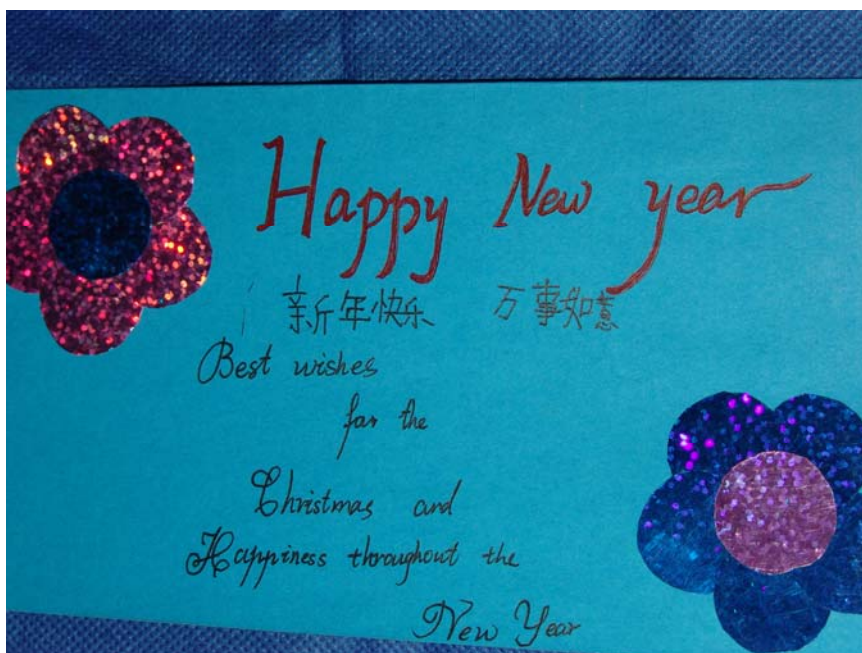 Happy New year
新年快乐 万事如意
Best wishes
for the
Christmas and
Happiness throughout the
New Year